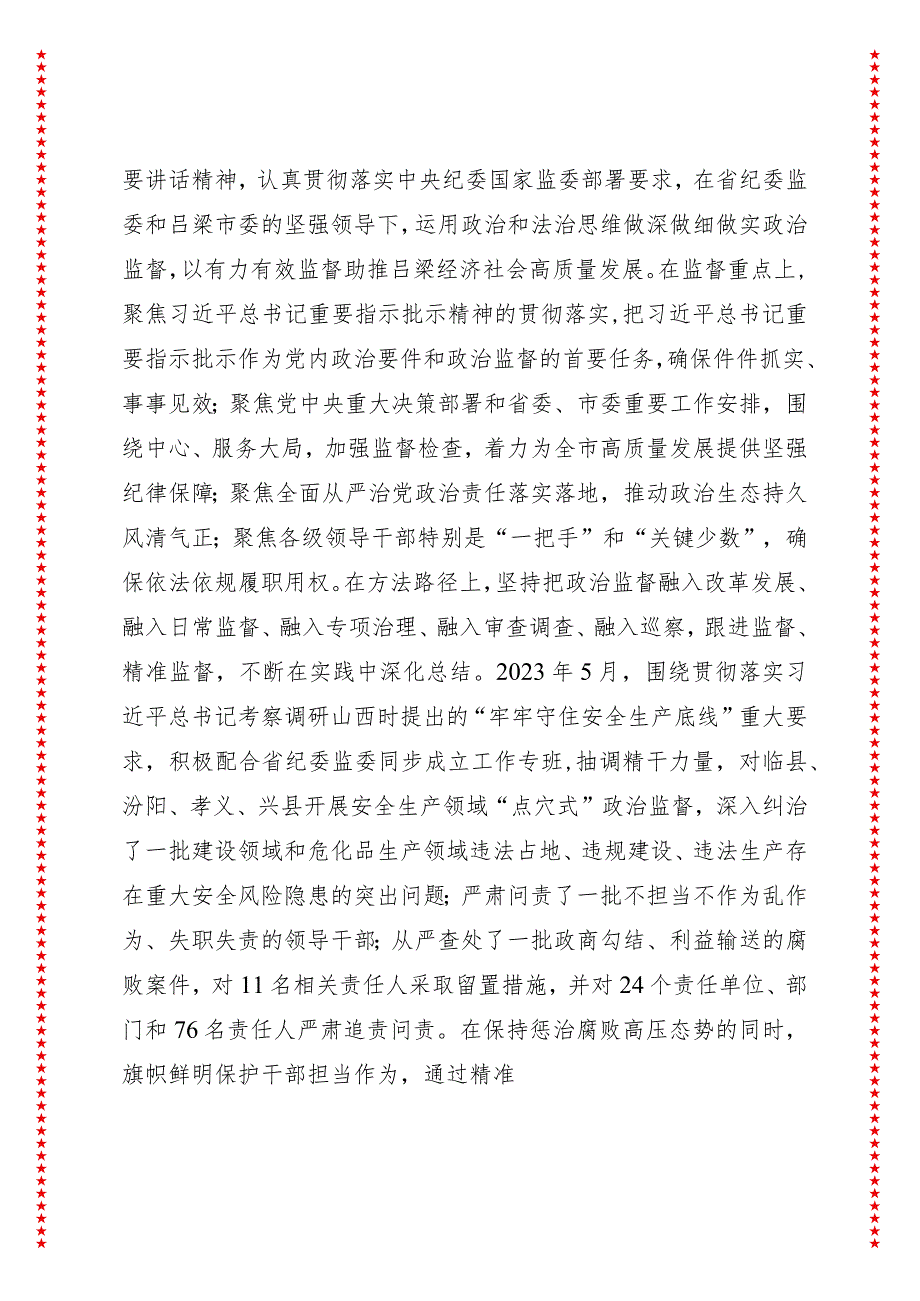 要讲话精神，认真贯彻落实中央纪委国家监委部署要求，在省纪委监
委和吕梁市委的坚强领导下，运用政治和法治思维做深做细做实政治
监督，以有力有效监督助推吕梁经济社会高质量发展。在监督重点上，
聚焦习近平总书记重要指示批示精神的贯彻落实,把习近平总书记重
要指示批示作为党内政治要件和政治监督的首要任务，确保件件抓实、
事事见效；聚焦党中央重大决策部署和省委、市委重要工作安排，围
绕中心、服务大局，加强监督检查，着力为全市高质量发展提供坚强
纪律保障；聚焦全面从严治党政治责任落实落地，推动政治生态持久
风清气正；聚焦各级领导干部特别是“一把手”和“关键少数”，确
保依法依规履职用权。在方法路径上，坚持把政治监督融入改革发展、
融入日常监督、融入专项治理、融入审查调查、融入巡察，跟进监督、
精准监督，不断在实践中深化总结。2023年5月，围绕贯彻落实习
近平总书记考察调研山西时提出的“牢牢守住安全生产底线”重大要
求，积极配合省纪委监委同步成立工作专班,抽调精干力量，对临县、
汾阳、孝义、兴县开展安全生产领域“点穴式”政治监督，深入纠治
了一批建设领域和危化品生产领域违法占地、违规建设、违法生产存
在重大安全风险隐患的突出问题；严肃问责了一批不担当不作为乱作
为、失职失责的领导干部；从严查处了一批政商勾结、利益输送的腐
败案件，对11名相关责任人采取留置措施，并对24个责任单位、部
门和76名责任人严肃追责问责。在保持惩治腐败高压态势的同时，
旗帜鲜明保护干部担当作为，通过精准